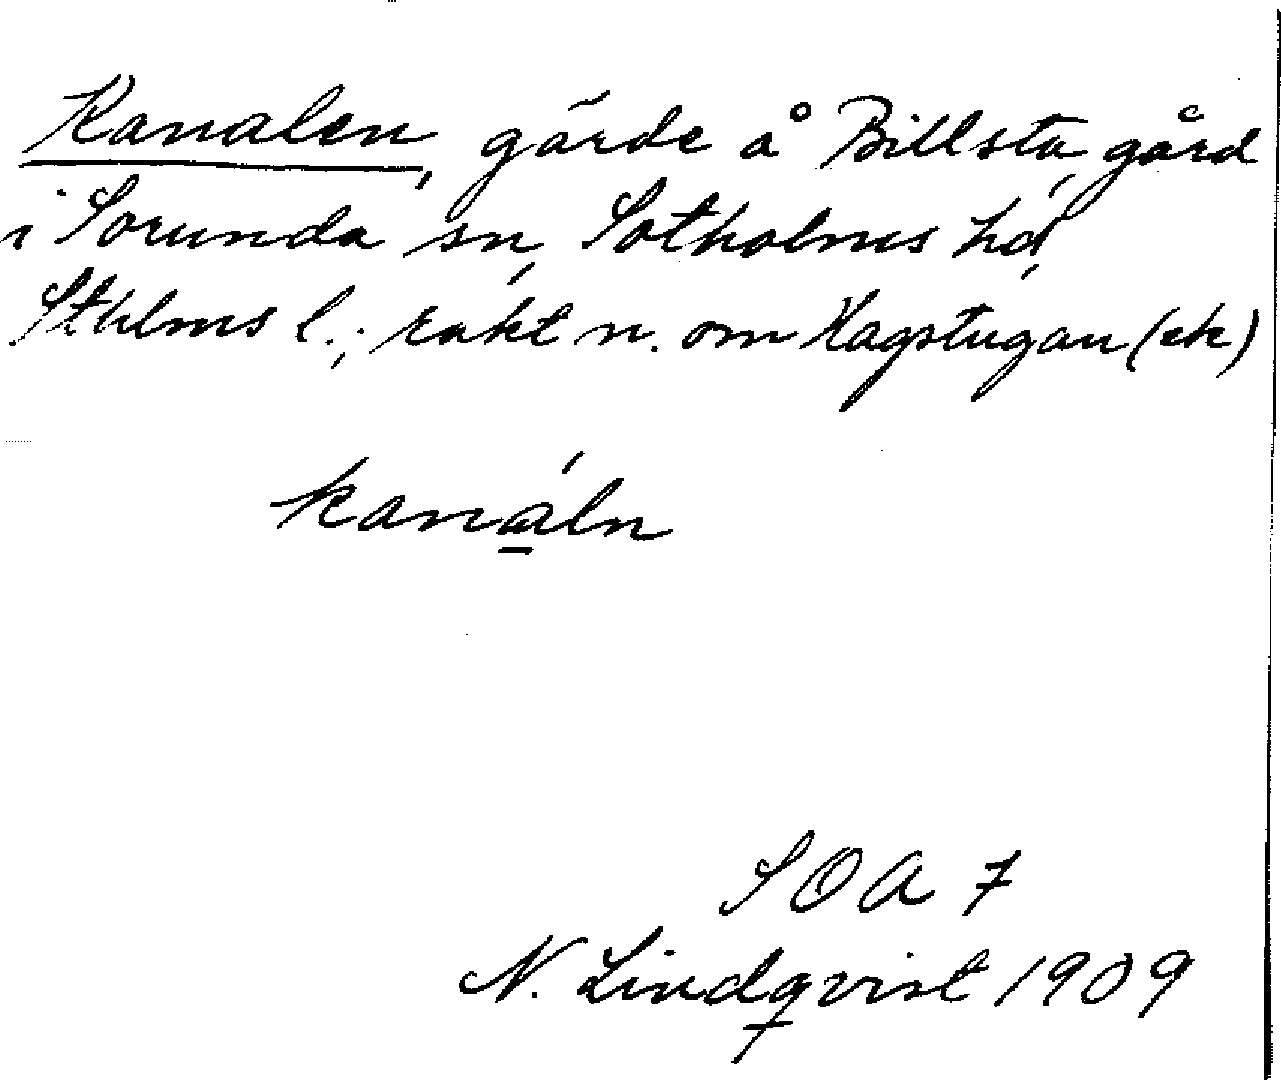 Kanalen, gärde å Billsta gård
i Sorunda sn, Sotholms hd,
Sthlms l.; rakt n. om Kagstugan (ek)
kanáln
SOA 7
N. Lindqvist 1909